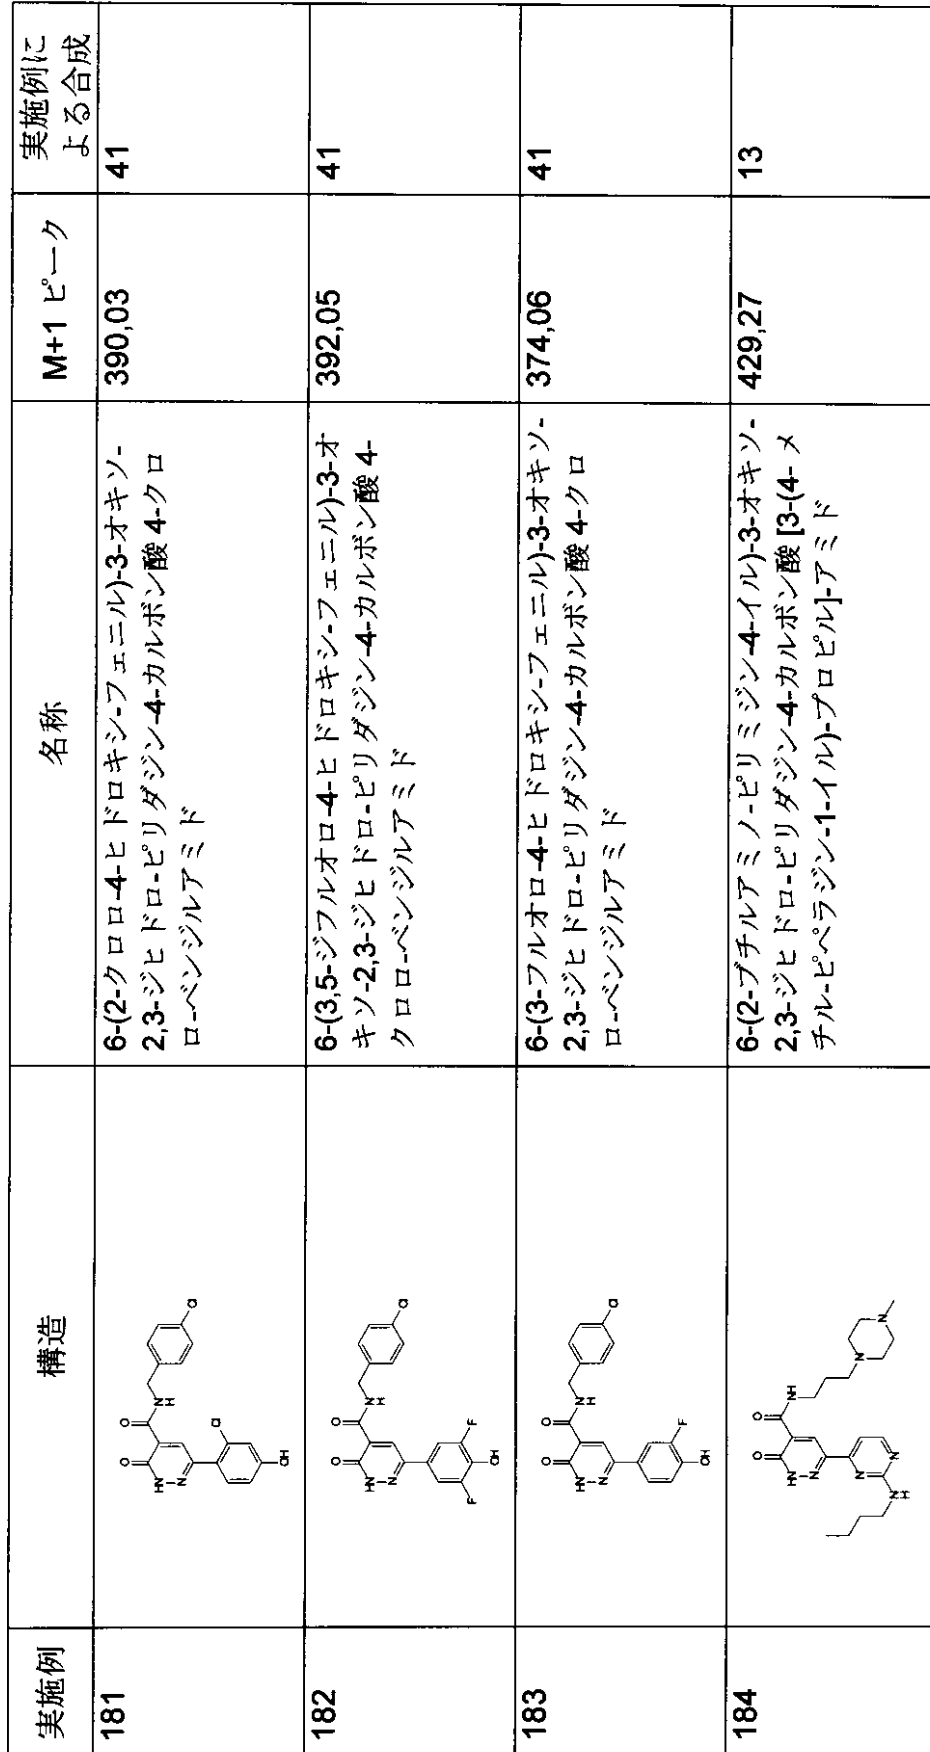 実施例
構造
名称
M+1 ピーク
実施例に
よる合成
181
6-(2-クロロ-4-ヒドロキシ-フェニル)-3-オキソ-
2,3-ジヒドロ-ピリダジン-4-カルボン酸 4-クロ
ロ-ベンジルアミド
390,03
41
182
6-(3,5-ジフルオロ-4-ヒドロキシ-フェニル)-3-オ
キソ-2,3-ジヒドロ-ピリダジン-4-カルボン酸 4-
クロロ-ベンジルアミド
392,05
41
183
6-(3-フルオロ-4-ヒドロキシ-フェニル)-3-オキソ-
2,3-ジヒドロ-ピリダジン-4-カルボン酸 4-クロ
ロ-ベンジルアミド
374,06
41
184
6-(2-ブチルアミノ-ピリミジン-4-イル)-3-オキソ-
2,3-ジヒドロ-ピリダジン-4-カルボン酸 [3-(4-メ
チル-ピペラジン-1-イル)-プロピル]-アミド
429,27
13